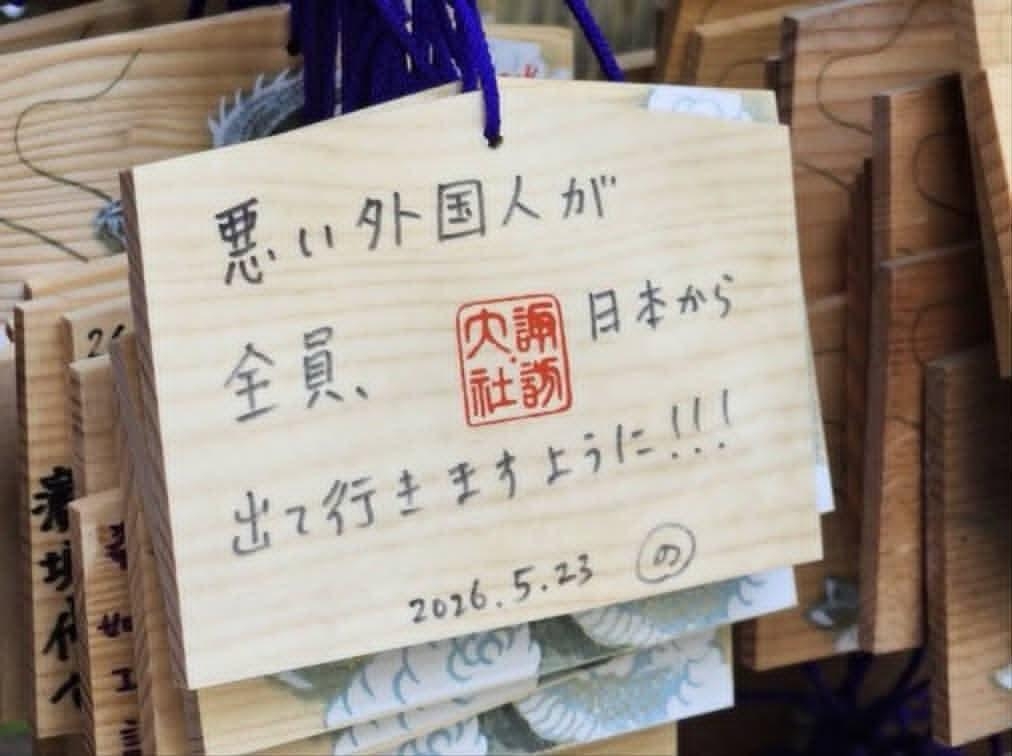 悪い外国人が
全員、 日本から
諏訪
大社
出て行きますように!!!
2026.5.23 の